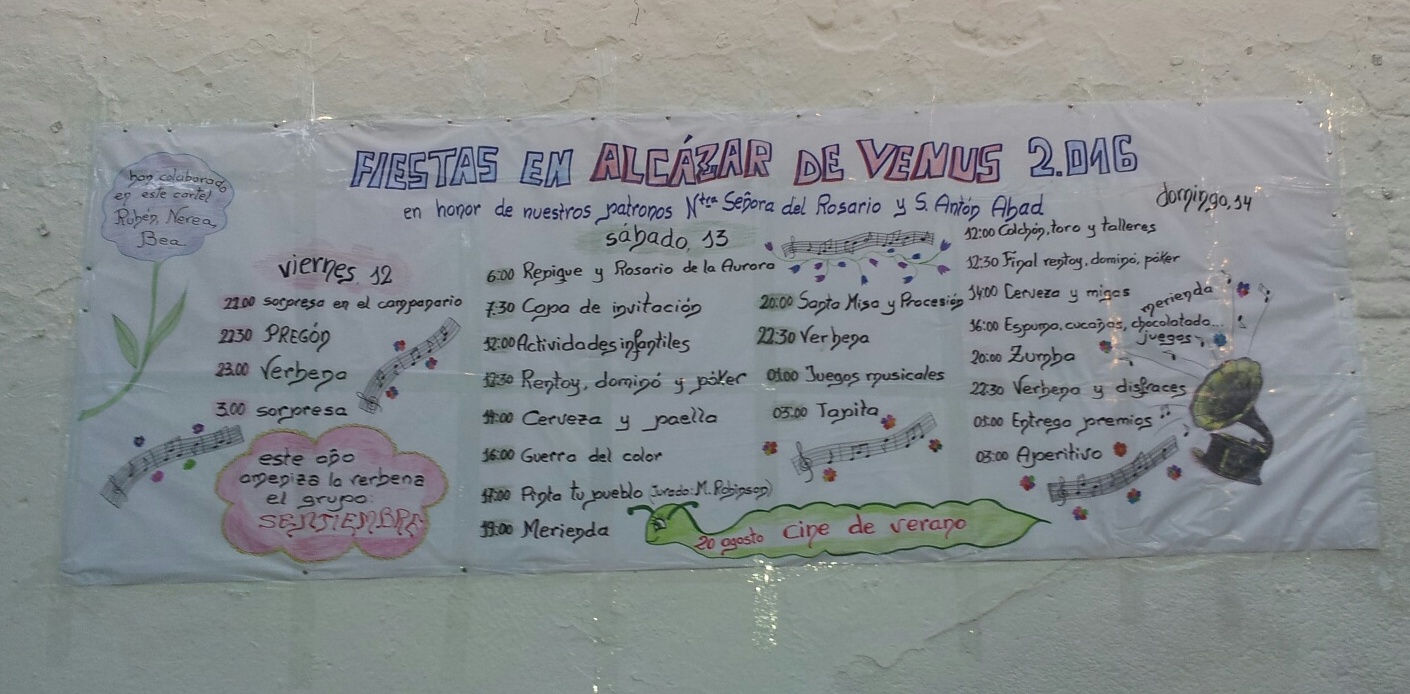 FIESTAS EN ALCÁZAR DE VENUS 2.016
en honor de nuestros patronos Ntra Señora del Rosario y S. Antón Abad
han colaborado
en este cartel
Rubén, Nerea,
Bea
viernes, 12
22:00 sorpresa en el campanario
22:30 PREGÓN
23:00 Verbena
3:00 sorpresa
este año
ameniza la verbena
el grupo:
SEPTIEMBRE
sábado, 13
6:00 Repique y Rosario de la Aurora
7:30 Copa de invitación
12:00 Actividades infantiles
12:30 Rentoy, dominó y póker
14:00 Cerveza y paella
16:00 Guerra del color
17:00 Pinta tu pueblo (Jurado: M. Robinson)
19:00 Merienda
20:00 Santa Misa y Procesión
22:30 Verbena
01:00 Juegos musicales
03:00 Tapita
domingo, 14
12:00 Colchón, toro y talleres
12:30 Final rentoy, dominó, póker
14:00 Cerveza y migas
16:00 Espuma, cucañas, chocolatada...
merienda
juegos,
20:00 Zumba
22:30 Verbena y disfraces
01:00 Entrega premios
03:00 Aperitivo
20 agosto cine de verano